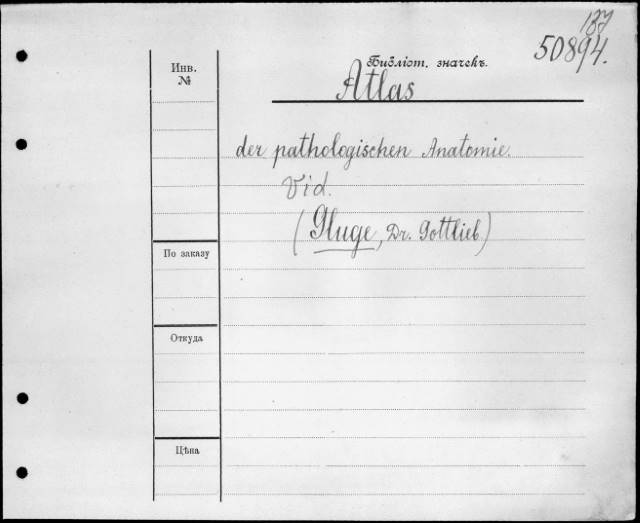 137
50894.
Библіот. значекъ.
Инв.
№
Atlas
der pathologischen Anatomie.
Vid.
(Gluge, Dr. Gottlieb)
По заказу
Откуда
Цѣна